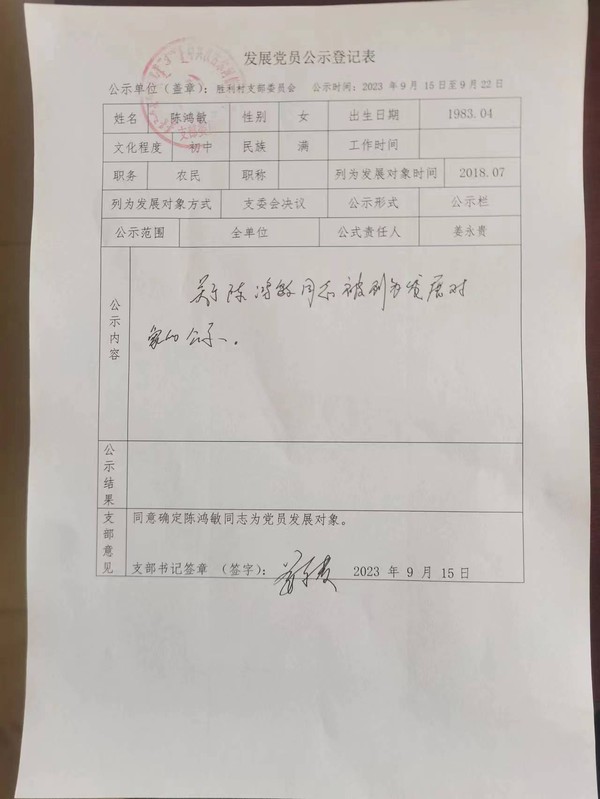 发展党员公示登记表
公示单位（盖章）：胜利村支部委员会 公示时间：2023 年 9 月 15 日至 9 月 22 日
姓名 陈鸿敏 性别 女 出生日期 1983.04
文化程度 初中 民族 满 工作时间
职务 农民 职称 列为发展对象时间 2018.07
列为发展对象方式 支委会决议 公示形式 公示栏
公示范围 全单位 公式责任人 姜永贵
公示内容
关于陈鸿敏同志被列为发展对
象的公示。
公示结果
支部意见
同意确定陈鸿敏同志为党员发展对象。
支部书记签章 （签字）： 姜永贵 2023 年 9 月 15 日